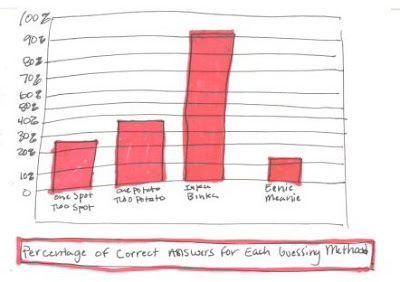 100%
90%
80%
70%
60%
50%
40%
30%
20%
10%
0
One Spot
Two Spot
One Potato
Two Potato
Inka
Binka
Eenie
Meanie
Percentage of Correct Answers for Each Guessing Method